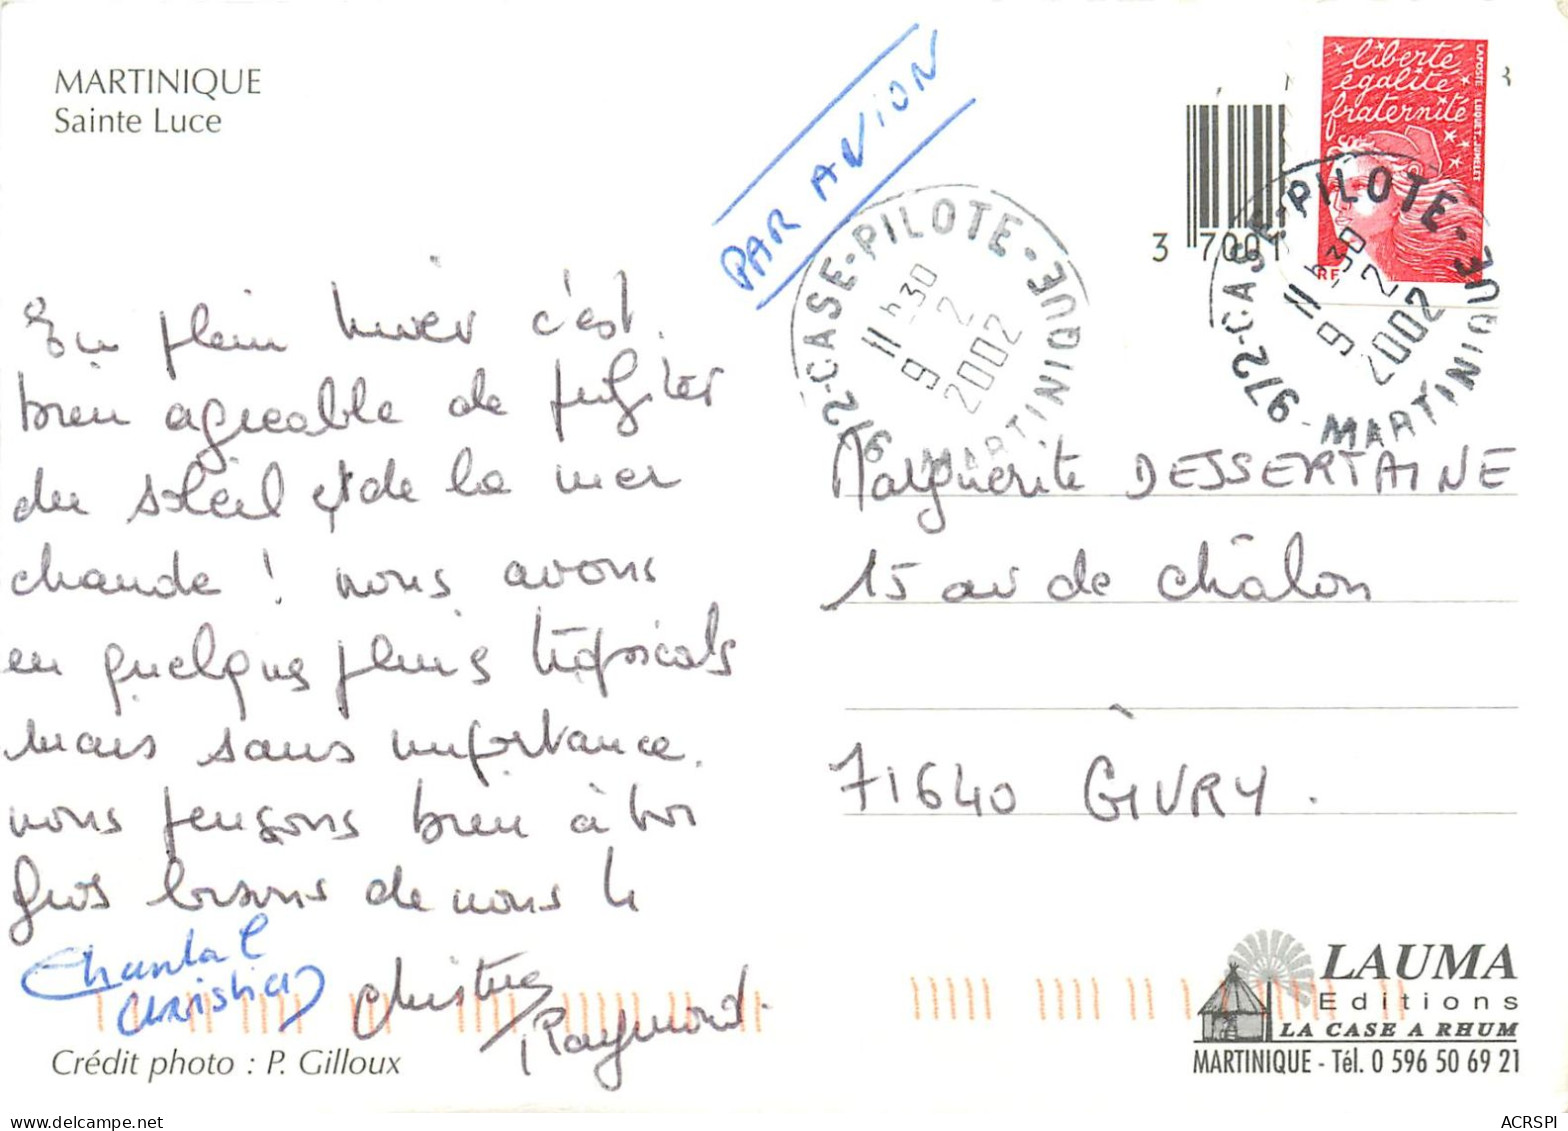 MARTINIQUE
Sainte Luce
PAR AVION
liberté
égalité
fraternité
LAPOSTE LUQUET.JUMELET
RF
3 7001
972-CASE-PILOTE-MARTINIQUE
11 h 30
9 2
2002
972-CASE-PILOTE-MARTINIQUE
11 h 30
9 2
2002
En plein hiver c'est
bien agreable de profiter
du soleil et de la mer
chaude ! nous avons
eu quelques pluies tropicals
mais sans importance.
nous pensons bien à toi
Gros bisous de nous 4
Chantal
Christian
Christine
Raymond.
Marguerite DESSERTAINE
15 av de châlon
71640 GIVRY.
Crédit photo : P. Gilloux
LAUMA
Editions
LA CASE A RHUM
MARTINIQUE - Tél. 0 596 50 69 21
delcampe.net
ACRSPI